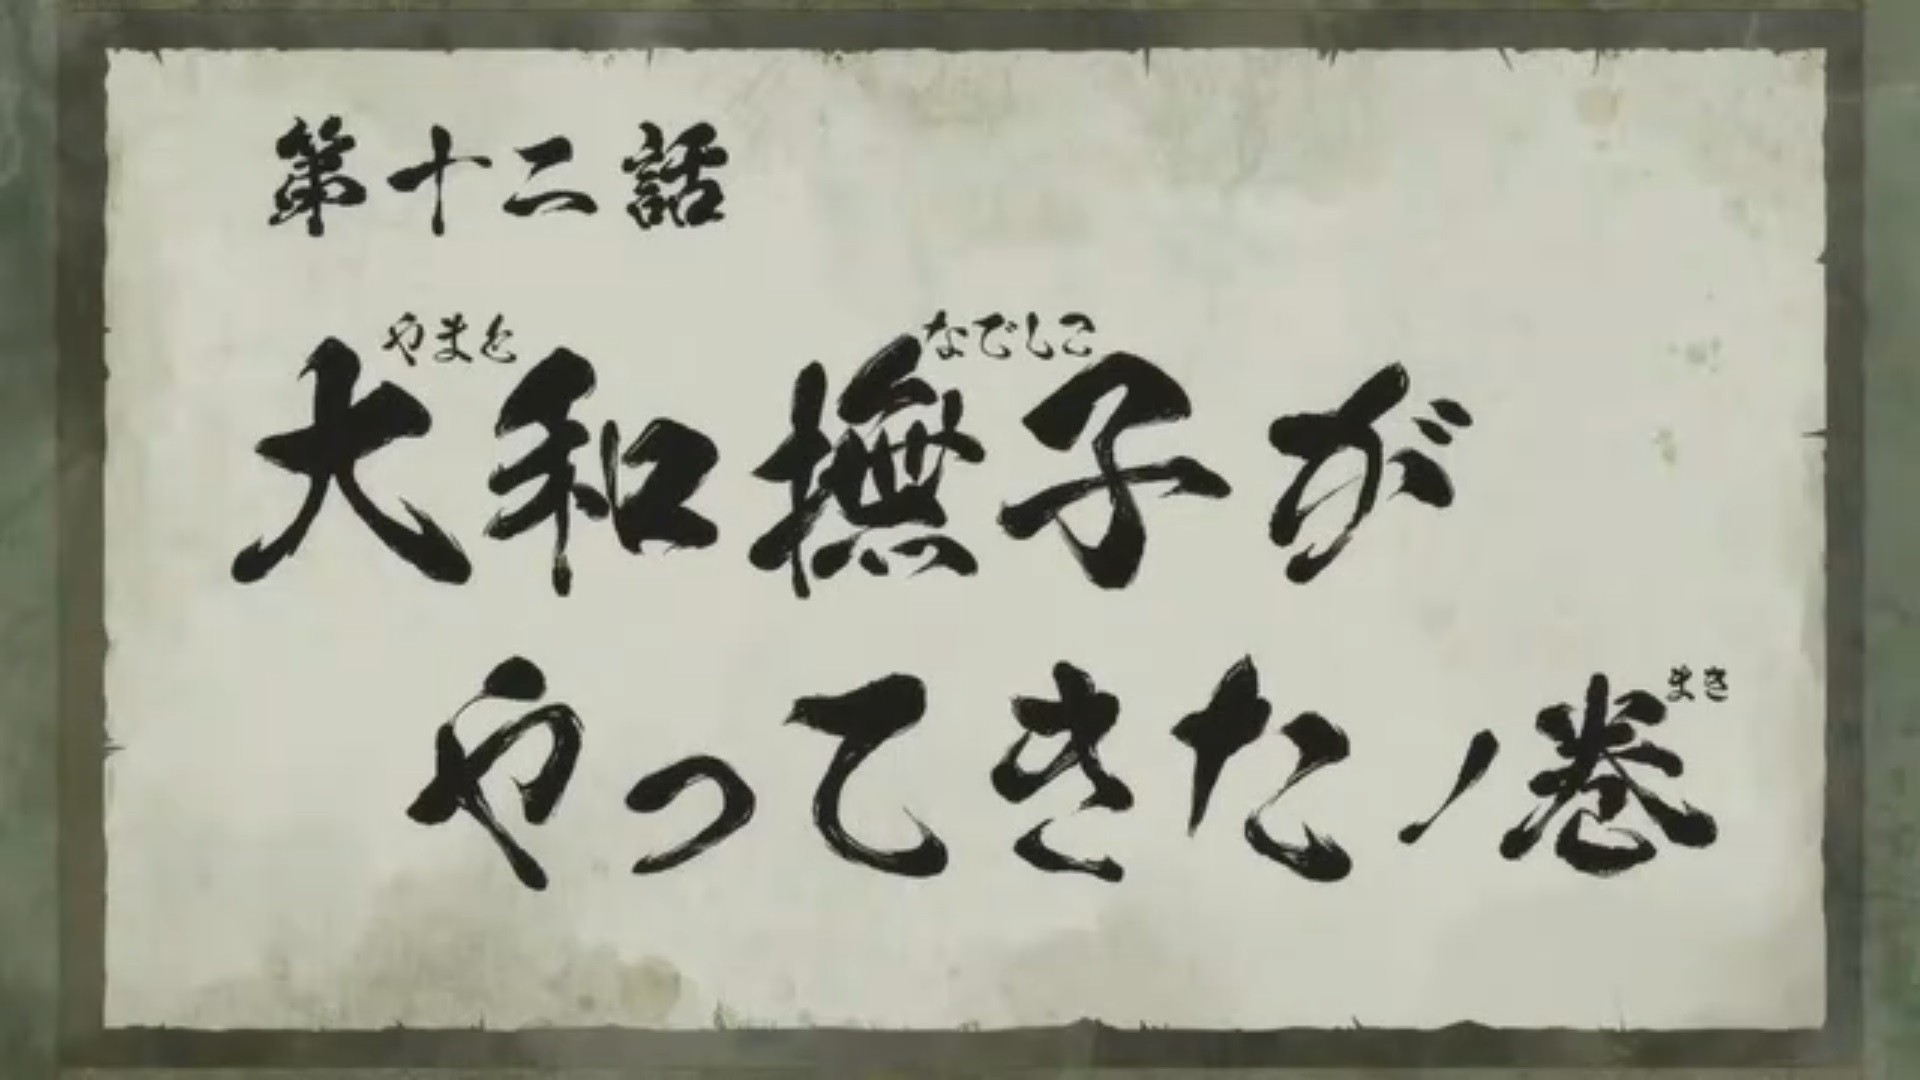 第十二話
やまと なでしこ
大和撫子が
まき
やってきたノ巻